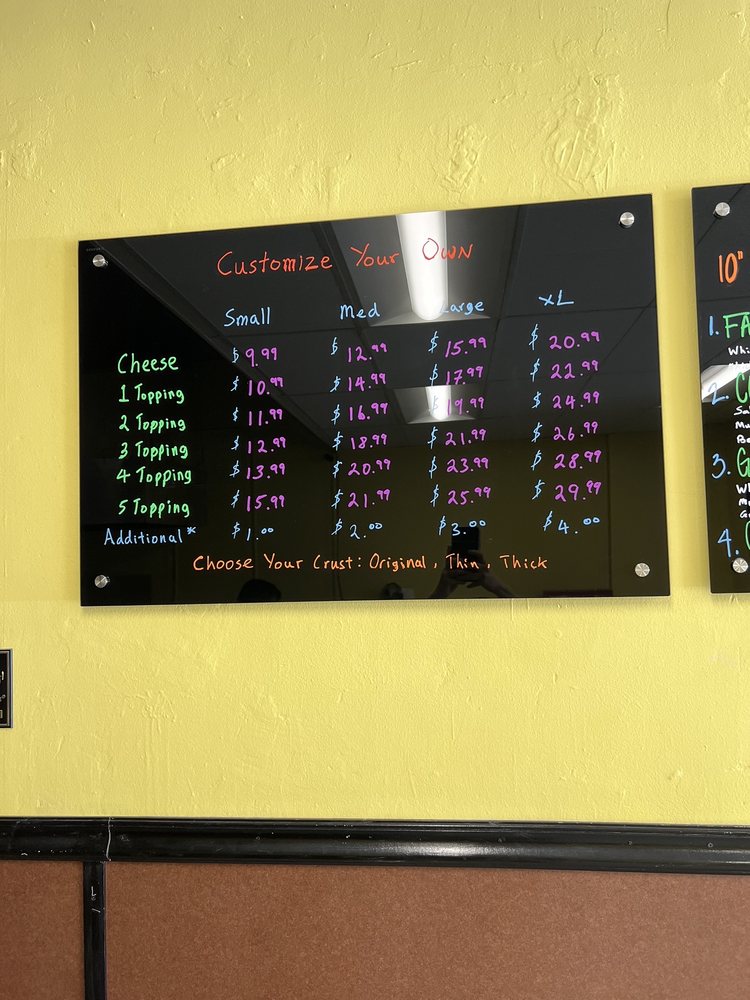 Customize Your Own
Small Med Large XL
Cheese $ 9.99 $ 12.99 $ 15.99 $ 20.99
1 Topping $ 10.99 $ 14.99 $ 17.99 $ 22.99
2 Topping $ 11.99 $ 16.99 $ 19.99 $ 24.99
3 Topping $ 12.99 $ 18.99 $ 21.99 $ 26.99
4 Topping $ 13.99 $ 20.99 $ 23.99 $ 28.99
5 Topping $ 15.99 $ 21.99 $ 25.99 $ 29.99
Additional* $ 1.00 $ 2.00 $ 3.00 $ 4.00
Choose Your Crust: Original, Thin, Thick
10"
1.
2.
3.
4.